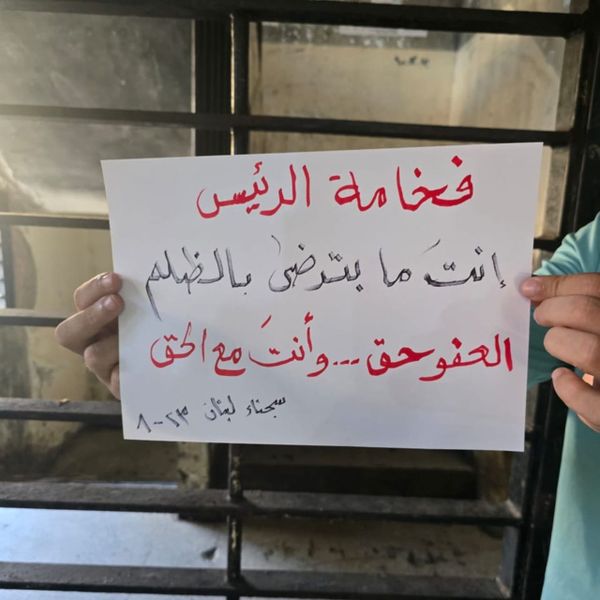 فخامة الرئيس
إنتَ ما بترضى بالظلم
العفو حق ... وأنتَ مع الحق
سجناء لبنان ٢٣-٨